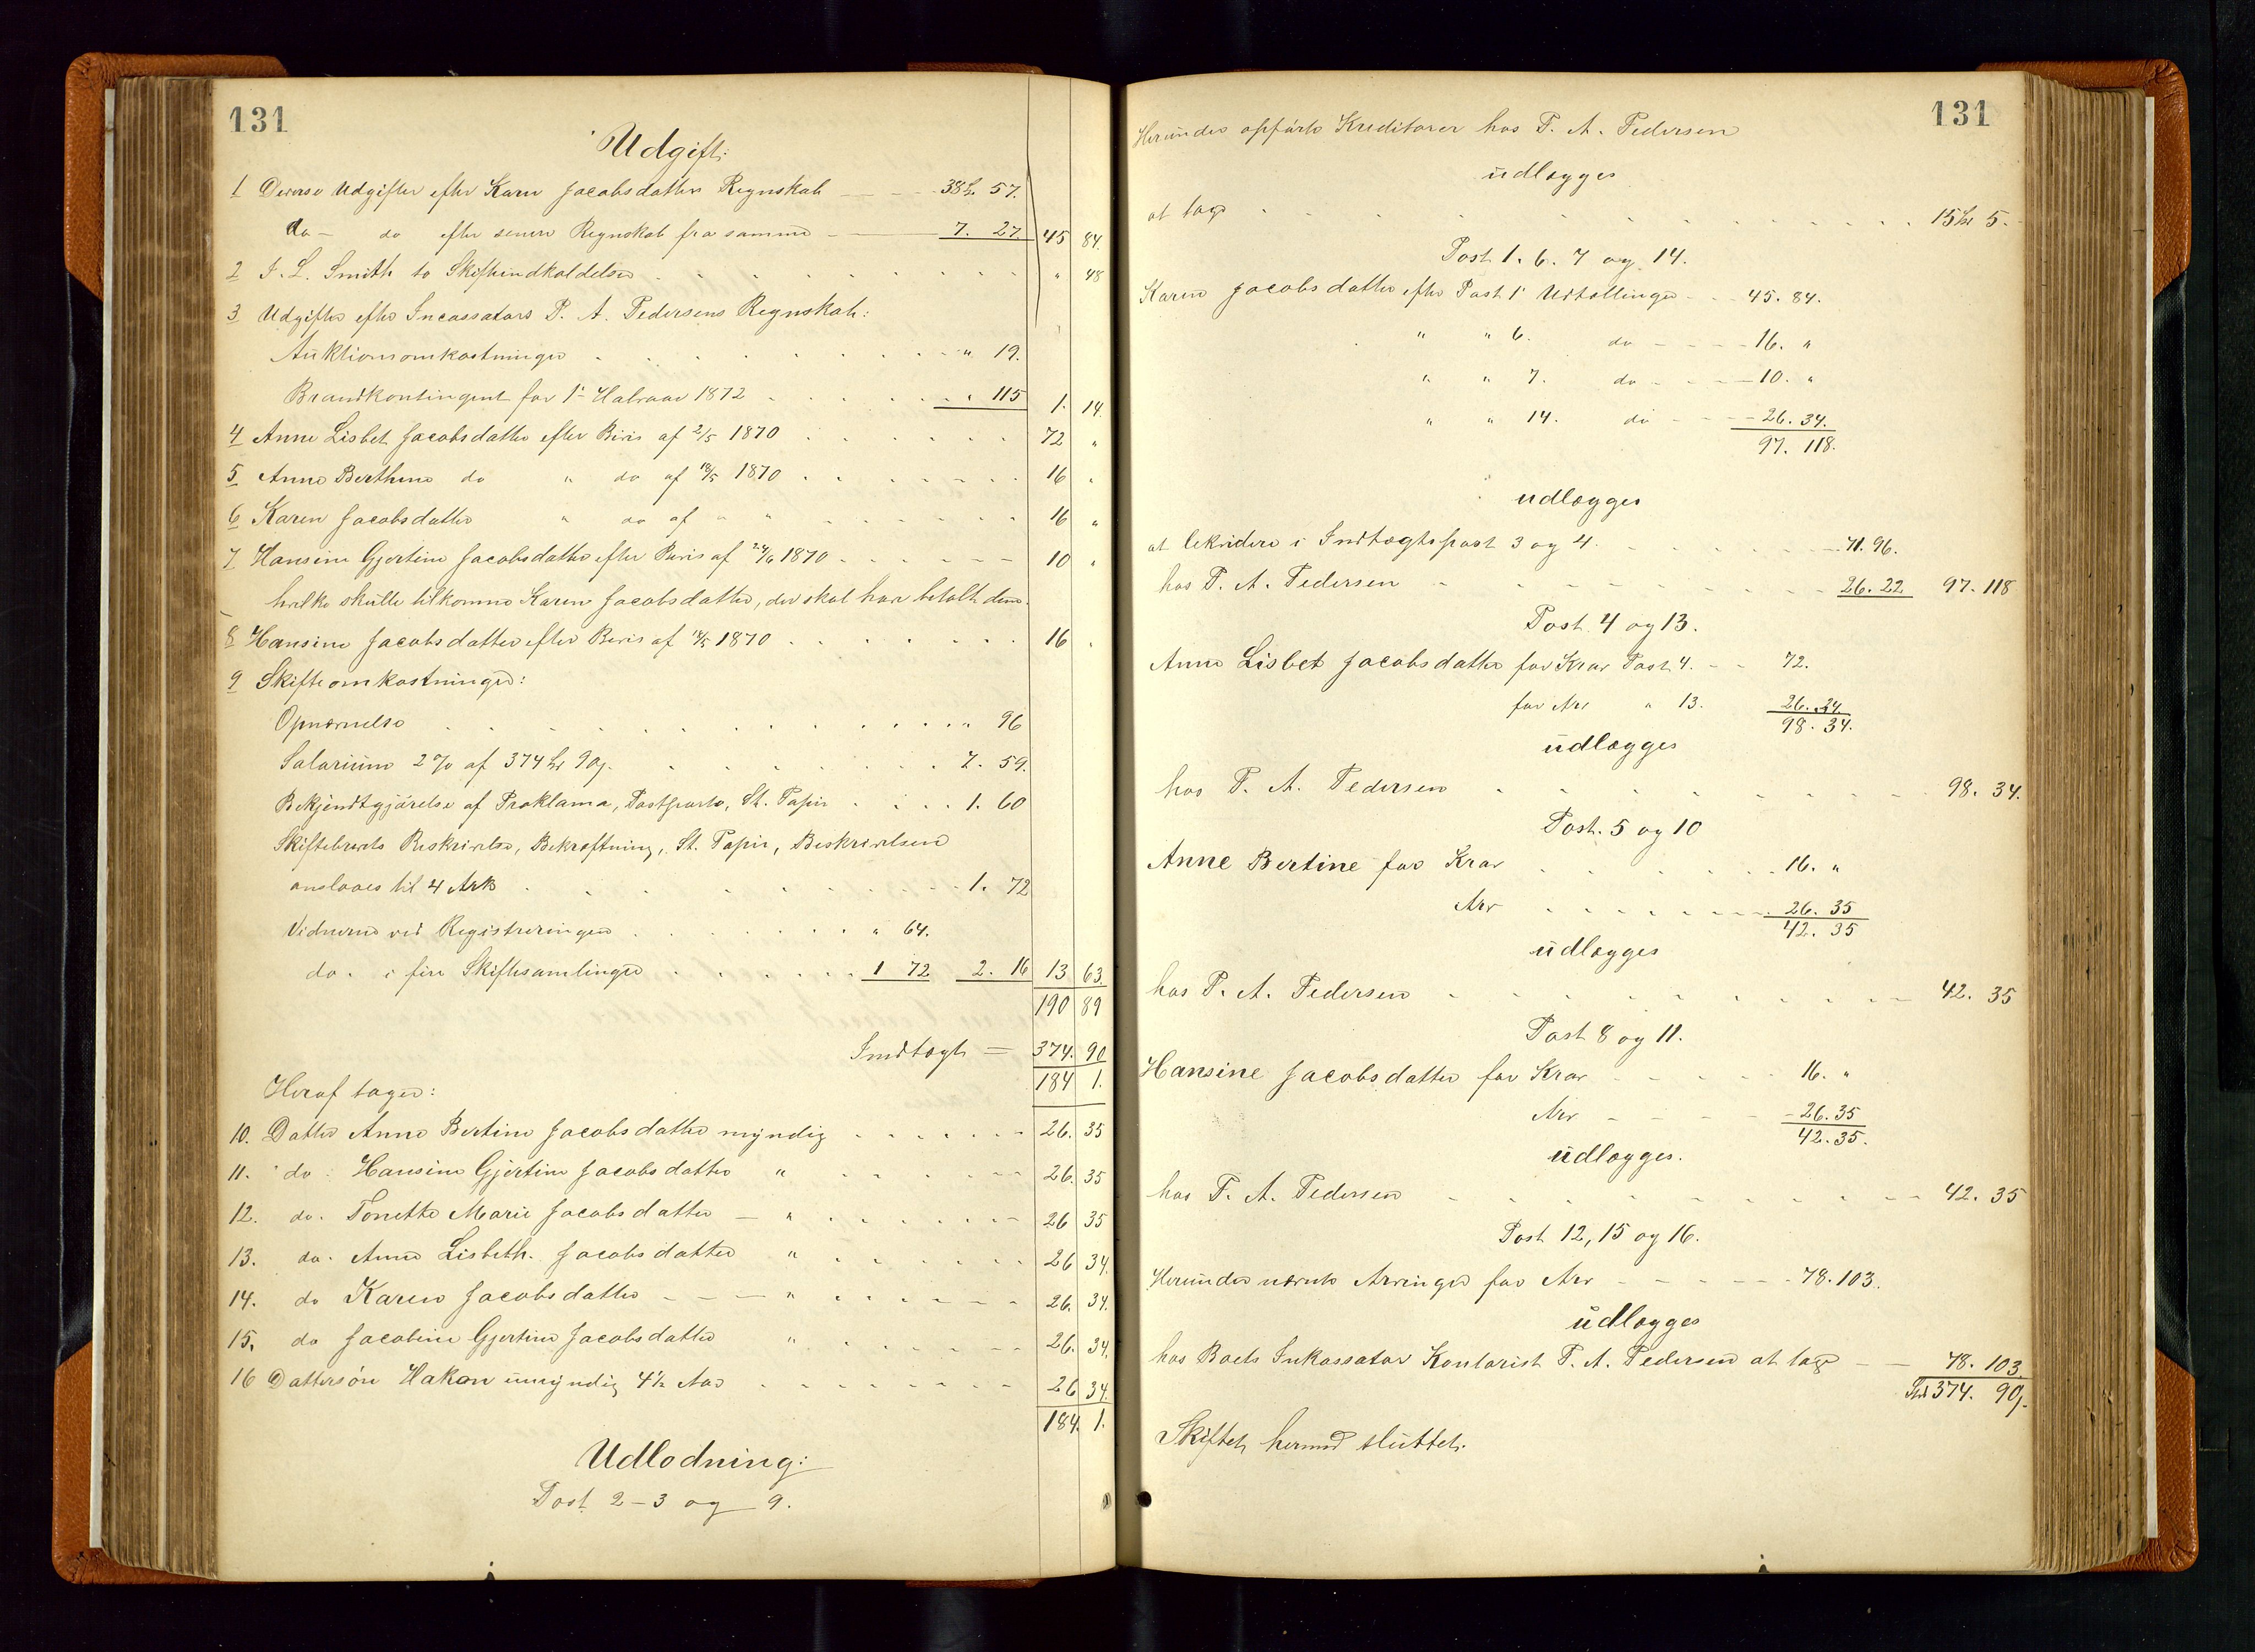 131
Udgift:
1 Diverse Udgifter efter Karen Jacobsdatters Regnskab - - - 38 57.
do - do efter senere Regnskab fra samme - 7. 27. 45 84.
2 F. L. Smith to Skifteindkaldelser . . . " 48
3 Udgifter efter Incassators P. A. Pedersens Regnskab:
Auktionsomkostninger . . . " 19.
Brandkontingent for 1ste Halvaar 1872 . . . " 115 1. 14.
4 Anne Lisbet Jacobsdatter efter Bevis af 2/5 1870 . . . 72 "
5 Anne Berthine do " do af 18/5 1870 . . . 16 "
6 Karen Jacobsdatter " do af " " . . . 16 "
7 Hansine Gjertine Jacobsdatter efter Bevis af 24/6 1870 . . . 10 "
hvilke skulle tilkomme Karen Jacobsdatter, der skal have betalt dem.
8 Hansine Jacobsdatter efter Bevis af 18/5 1870 . . . 16 .
9 Skifteomkostninger:
Opnævnelse . . . " 96
Salarium 2 % af 374 90 . . . 7. 59.
Bekjendtgjørelse af Proklama, Postporto, St. Papir . . . 1. 60
Skiftebrevets Beskrivelse, Bekræftning, St. Papir, Beskrivelsen
anslaaes til 4 Ark . . . 1. 72
Vidnerne ved Registreringen . . . " 64.
do. i fire Skiftesamlinger . . . 1 72 2. 16 13 63.
190 89
Indtægt = 374. 90
184 1.
Heraf tager:
10. Datter Anne Bertine Jacobsdatter myndig . . . 26. 35
11. do. Hansine Gjertine Jacobsdatter " . . . 26. 35
12. do. Tonette Marie Jacobsdatter - " . . . 26 35
13. do. Anne Lisbeth Jacobsdatter " . . . 26 34.
14. do Karen Jacobsdatter - - - " . . . 26. 34.
15. do Jacobine Gjertine Jacobsdatter " . . . 26. 34.
16 Dattersøn Hakon umyndig 4½ Aar . . . 26 34.
184. 1.
Udlodning:
Post 2-3 og 9.
131
Herunder opførte Kreditorer hos P. A. Pedersen
udlægges
at tage . . . 15 5.
Post 1. 6. 7 og 14.
Karen Jacobsdatter efter Post 1 Udtællinger - - 45. 84.
" " 6. do - - - 16. "
" " 7. do - - - 10. "
" " 14. do - - - 26. 34.
97. 118.
udlægges
at lekvidere i Indtægtspost 3 og 4. . . . 71. 96.
hos P. A. Pedersen . . . 26. 22 97. 118
Post 4 og 13.
Anne Lisbet Jacobsdatter for Krav Post 4. - - 72.
for Arv " 13. 26. 34.
98. 34.
udlægges
hos P. A. Pedersen . . . 98. 34.
Post. 5 og 10
Anne Bertine for Krav . . . 16. "
Arv . . . 26. 35
42. 35
udlægges
hos P. A. Pedersen . . . 42. 35
Post 8 og 11.
Hansine Jacobsdatter for Krav - - - 16. "
Arv - - - 26. 35
42. 35.
udlægges.
hos P. A. Pedersen - - - 42. 35
Post 12, 15 og 16.
Herunder nævnte Arvinger for Arv - - - 78. 103.
udlægges
hos Boets Inkassator Kontorist P. A. Pedersen at tage - - 78. 103.
Spd 374. 90
Skiftet hermed sluttet.